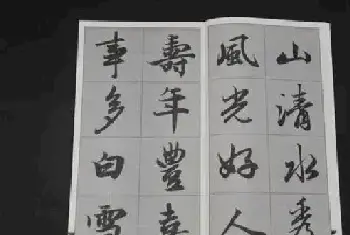 山清水秀
風光好人
壽年豐喜
事多白雪